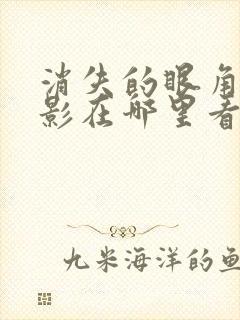 消失的眼角
影在哪里看
九米海洋的鱼